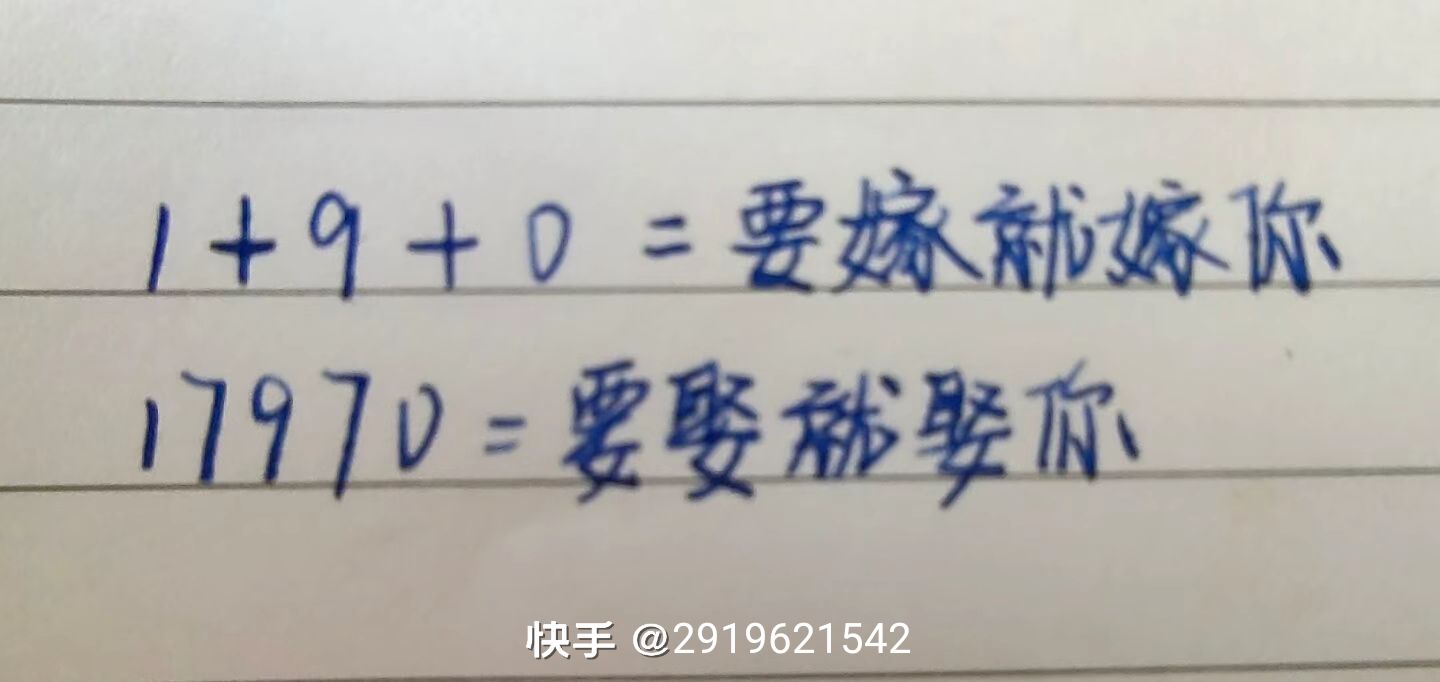 1+9+0=要嫁就嫁你
17970=要娶就娶你
快手 @2919621542